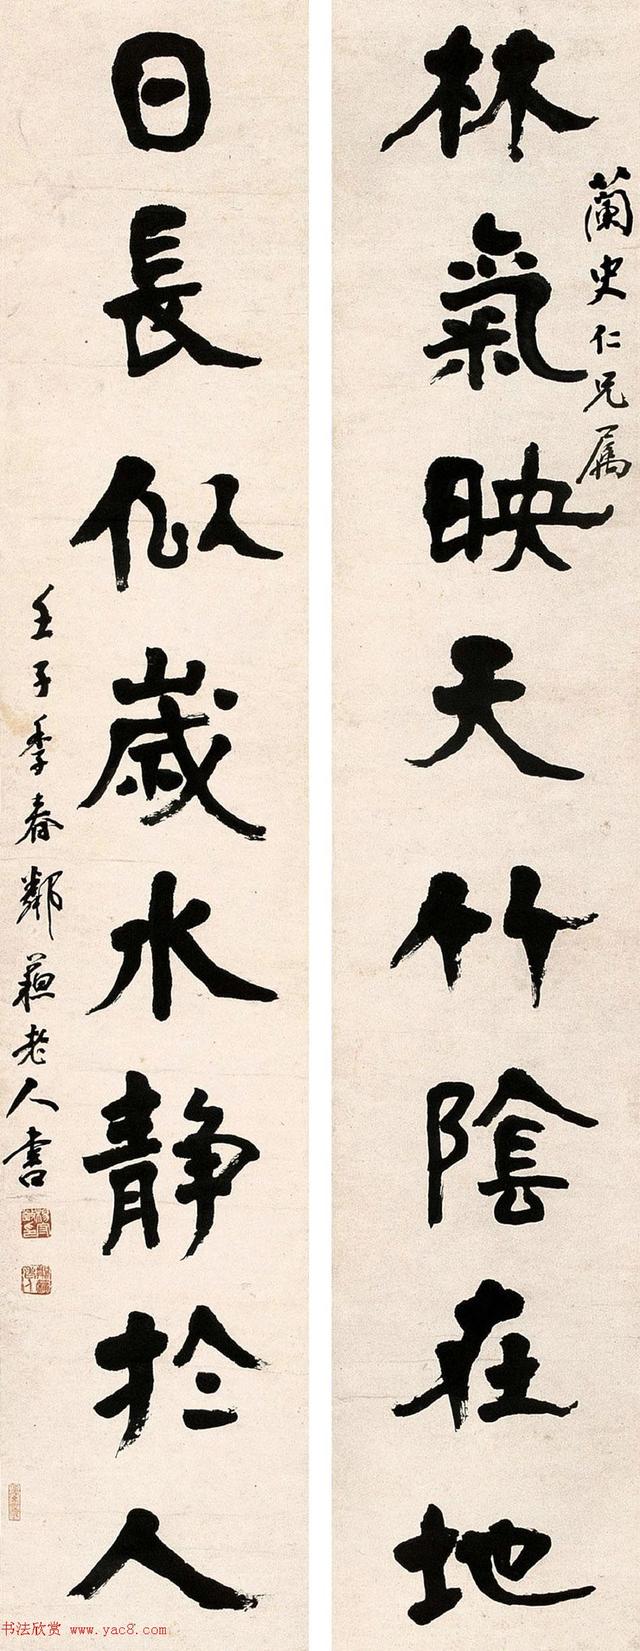 蘭史仁兄属
林氣映天竹陰在地
日長似歲水靜於人
壬子季春鄰蘓老人書
书法欣赏 www.yac8.com